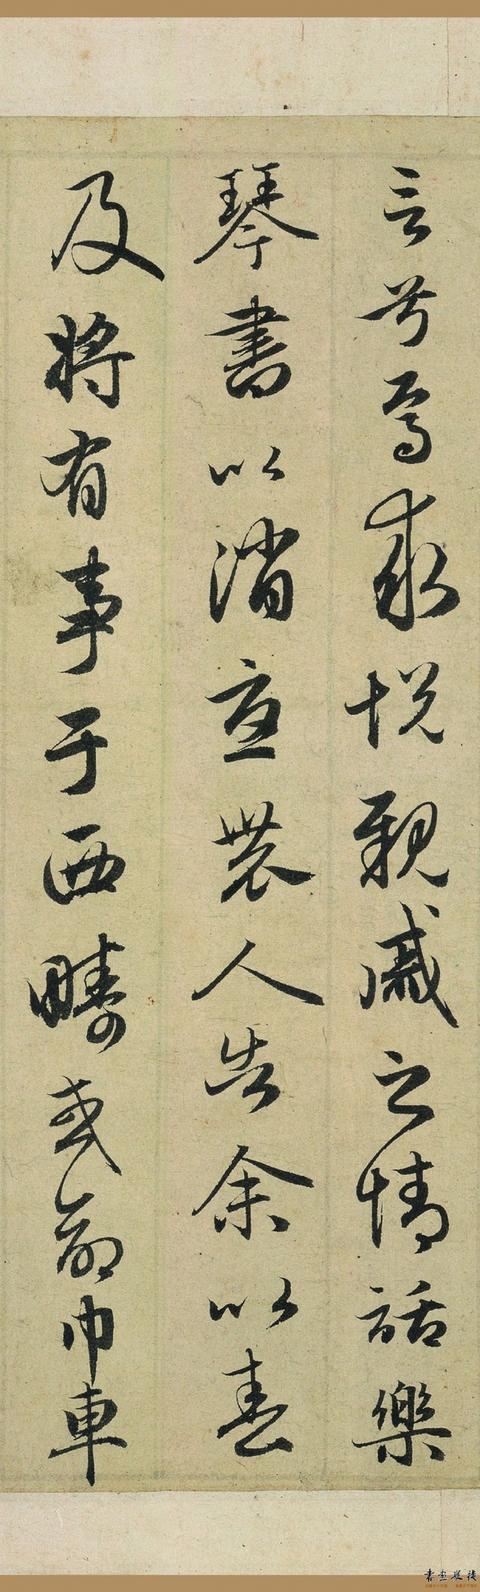 言兮焉求悅親戚之情話樂
琴書以消憂農人告余以春
及將有事于西疇或命巾車